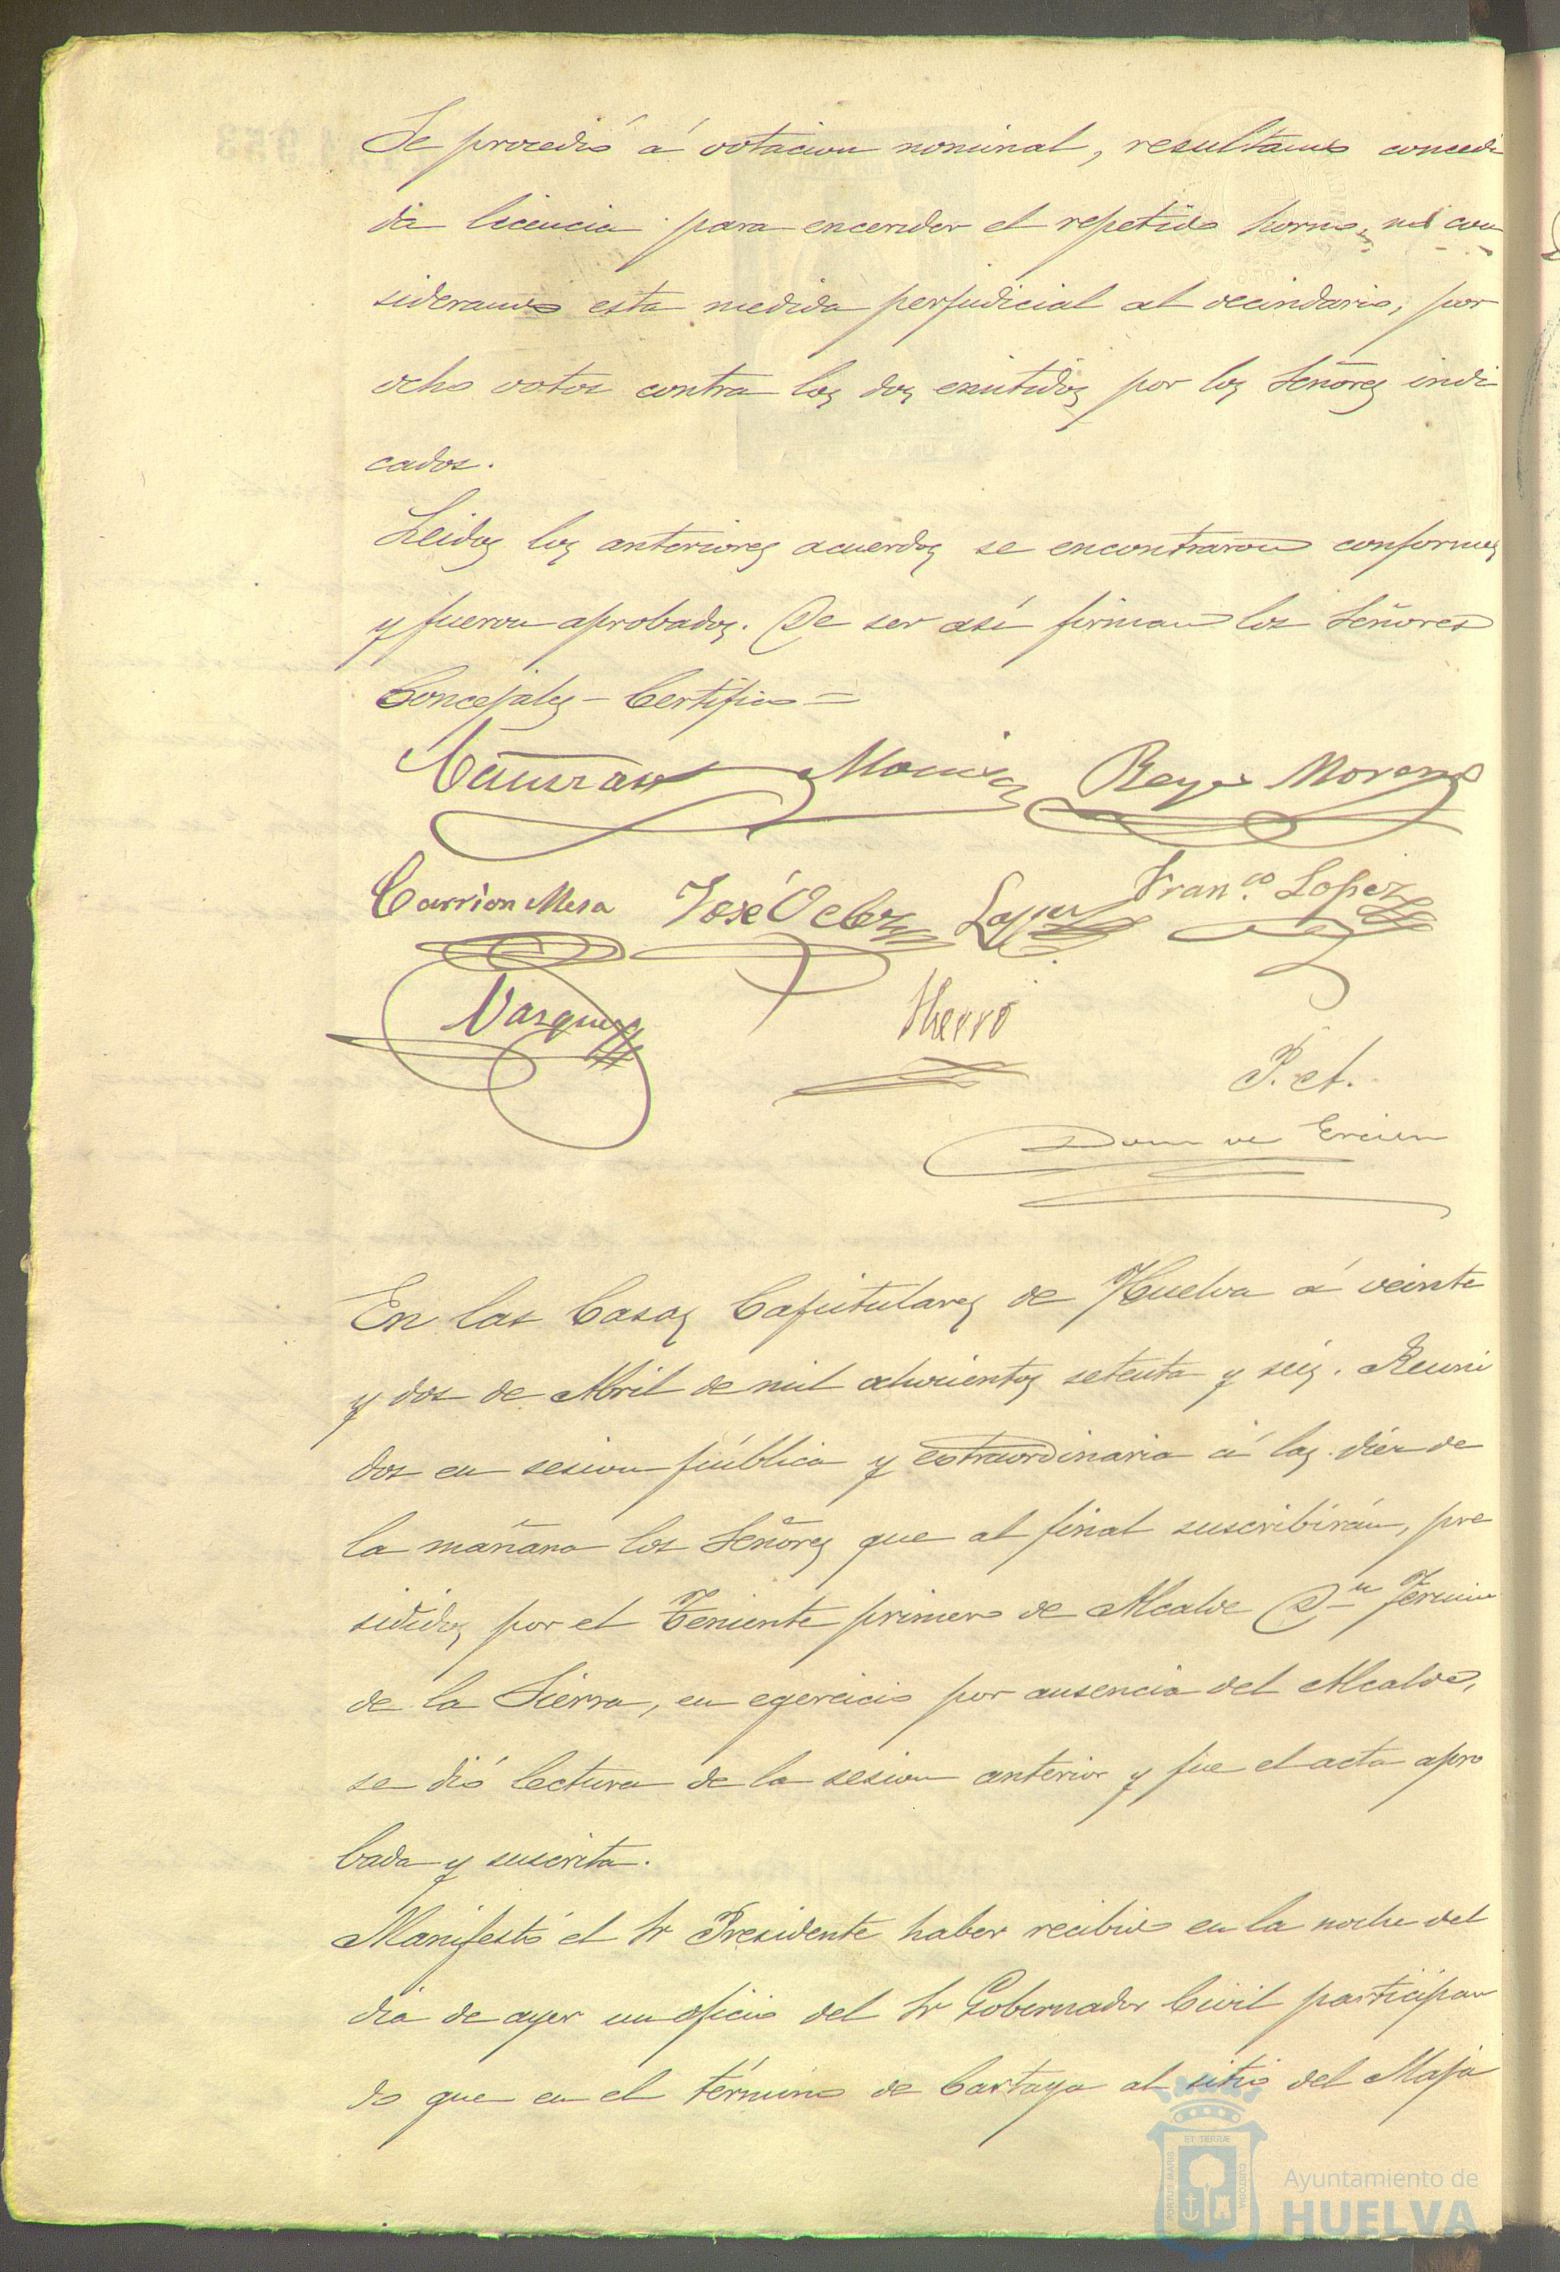 Se procedió á votacion nominal, resultando concedi
da licencia para encender el repetido horno, no con
siderando esta medida perjudicial al vecindario, por
ocho votos contra los dos emitidos por los Señores indi
cados.
Leidos los anteriores acuerdos se encontraron conformes
y fueron aprobados. De ser así firman los Señores
Concejales - Certifico =
Reyes Moreno
Carrion Mesa José Velez Lopez Fran.co Lopez
Vazquez Hierro
P. A.
En las Casas Capitulares de Huelva á veinte
y dos de Abril de mil ochocientos setenta y seis. Reuni
dos en sesion pública y extraordinaria á las diez de
la mañana los Señores que al final suscribirán, pre
sididos por el Teniente primero de Alcalde Dn Fermin
de la Sierra, en egercicio por ausencia del Alcalde,
se dió lectura de la sesion anterior y fue el acta apro
bada y suscrita.
Manifestó el Sr Presidente haber recibido en la noche del
dia de ayer un oficio del Sr Gobernador Civil participan
do que en el término de Cartaya al sitio del Maja
Ayuntamiento de
HUELVA